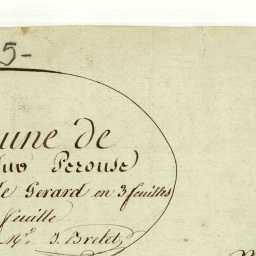 5-
une de
Perouse
le Gerard en 3 feuilles
feuille
3. Bretet